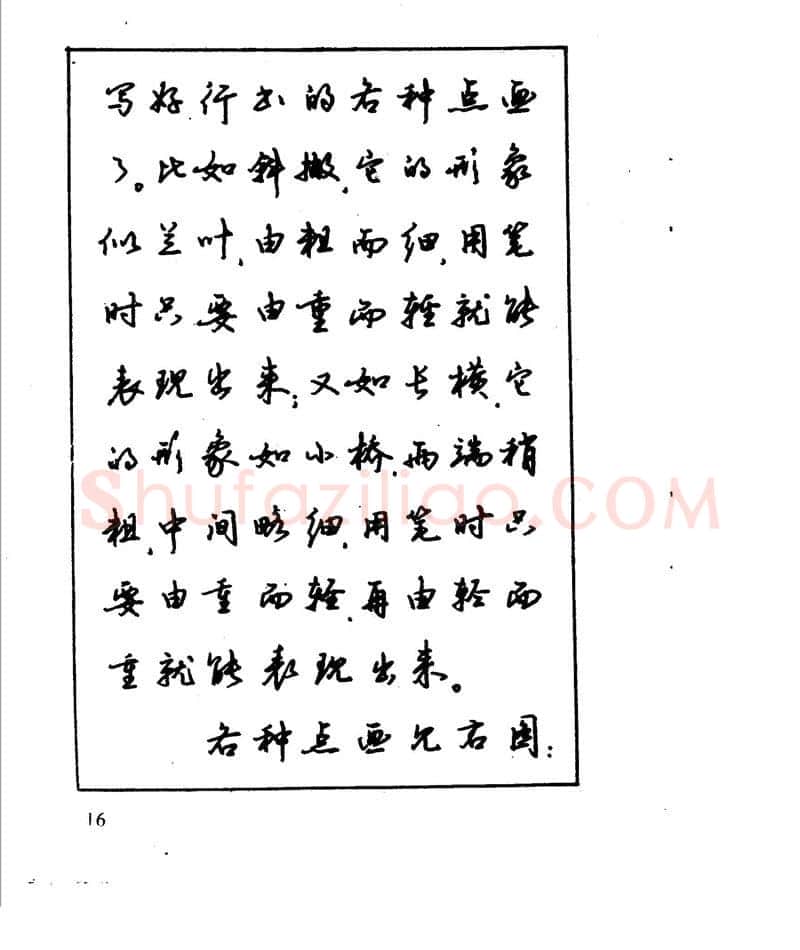 写好行书的各种点画
了。比如斜撇,它的形象
似兰叶,由粗而细,用笔
时只要由重而轻就能
表现出来;又如长横,它
的形象如小桥,两端稍
粗,中间略细,用笔时只
要由重而轻,再由轻而
重就能表现出来。
各种点画见右图:
Shufaziliao.COM
16